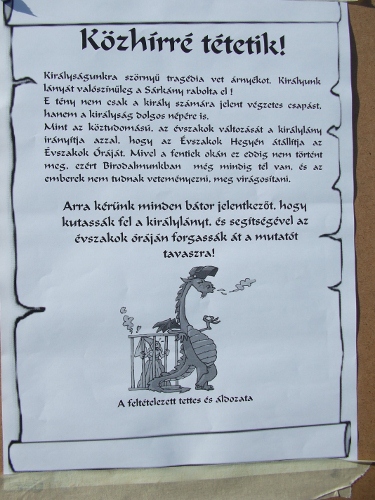 Közhírré tétetik!
Királyságunkra szörnyű tragédia vet árnyékot. Királyunk
lányát valószínűleg a Sárkány rabolta el !
E tény nem csak a király számára jelent végzetes csapást,
hanem a királyság dolgos népére is.
Mint az köztudomású, az évszakok változását a királylány
irányítja azzal, hogy az Évszakok Hegyén átállítja az
Évszakok Óráját. Mivel a fentiek okán ez eddig nem történt
meg, ezért Birodalmunkban még mindig tél van, és az
emberek nem tudnak veteményezni, meg virágosítani.
Arra kérünk minden bátor jelentkezőt, hogy
kutassák fel a királylányt, és segítségével az
évszakok óráján forgassák át a mutatót
tavaszra!
A feltételezett tettes és áldozata